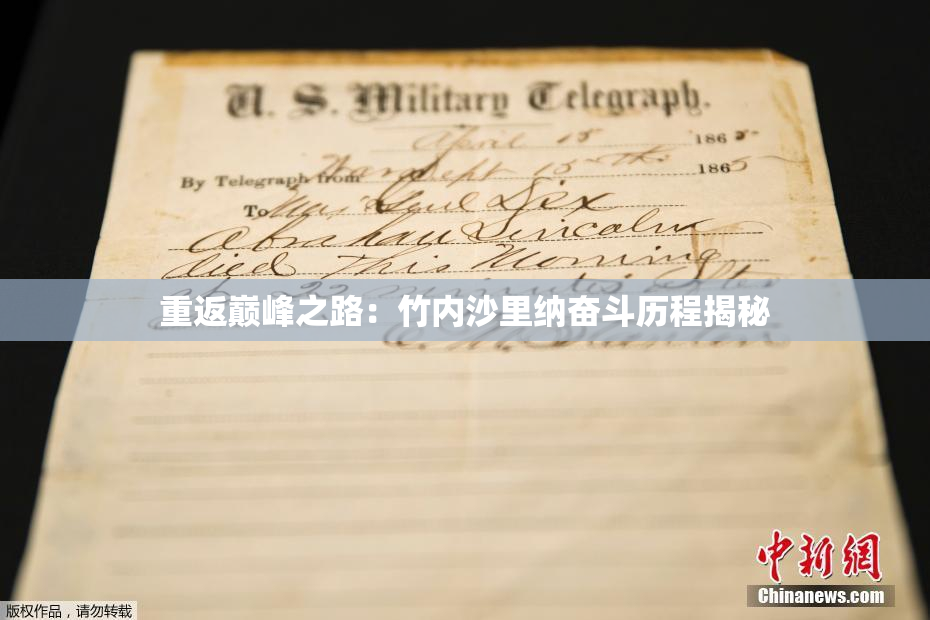 U. S. Military Telegraph.
April 15 1865
By Telegraph from War Dept 15th 1865
To Maj Genl Dix
Abraham Lincoln
died This Morning
at 22 minutes after
重返巅峰之路：竹内沙里纳奋斗历程揭秘
E. M. Stanton
中新网
Chinanews.com
版权作品，请勿转载